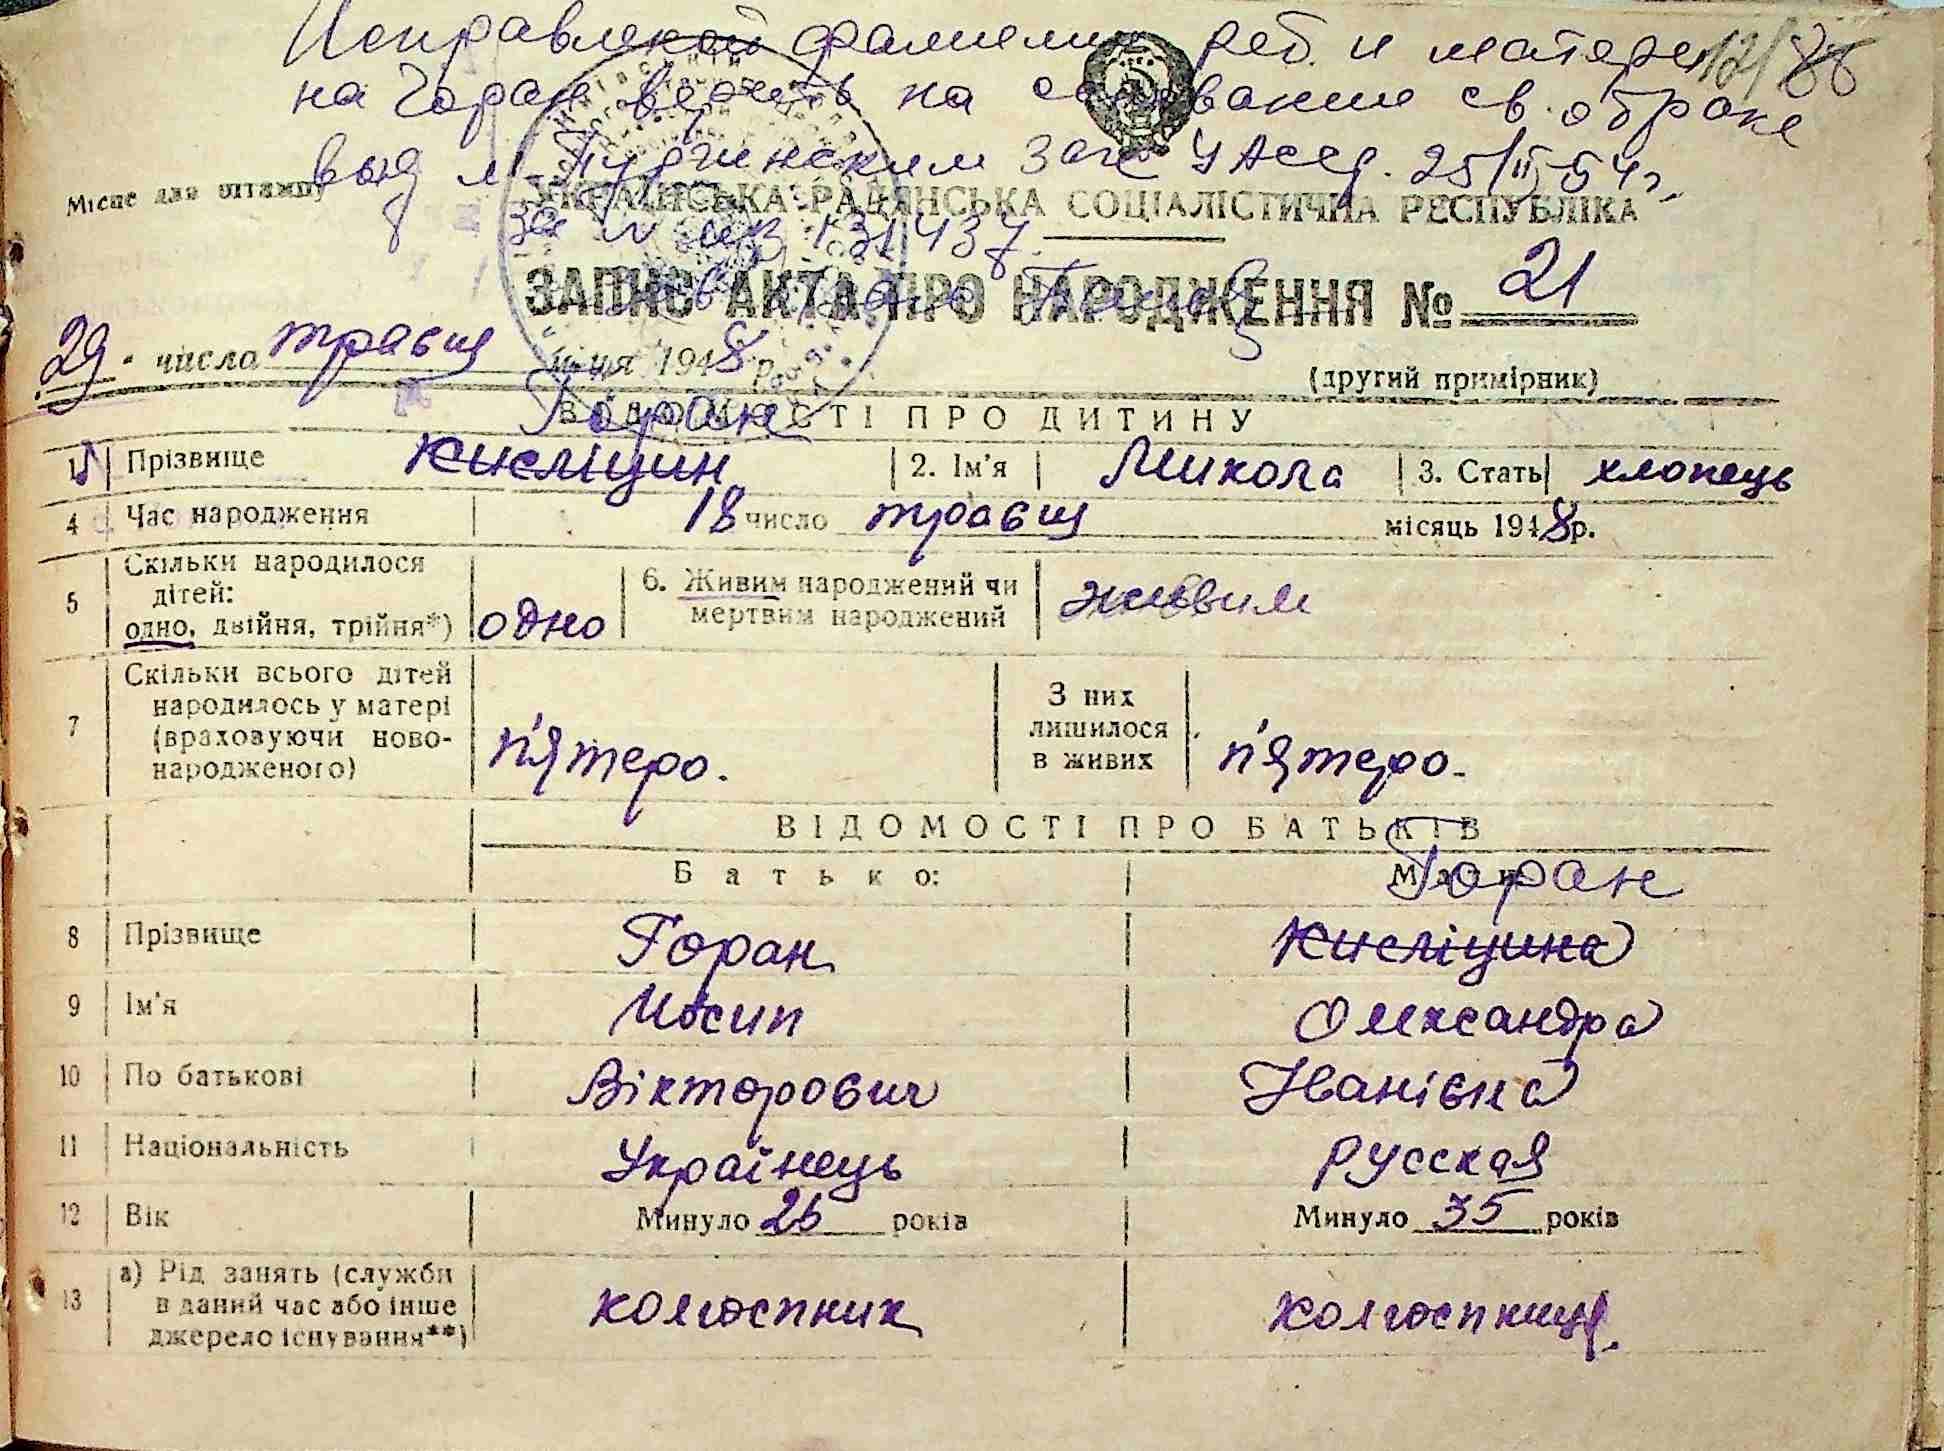 Исправлекой фамилии реб. и матери 12/86
на Горан верить на основание св. о браке
выд М-Пургинским Загс УАССР. 25/III 54 г.
Місце для штампу
УКРАЇНСЬКА РАДЯНСЬКА СОЦІАЛІСТИЧНА РЕСПУБЛІКА
за № 131437.
ЗАПИС АКТА ПРО НАРОДЖЕННЯ № 21
29 числа травня місяця 1948 р.
(другий примірник)
ВІДОМОСТІ ПРО ДИТИНУ
Горан
1 Прізвище Кисліцин 2. Ім'я Микола 3. Стать хлопець
4 Час народження 18 число травня місяць 1948 р.
5 Скільки народилося дітей: одно, двійня, трійня*) одно 6. Живим народжений чи мертвим народжений живим
7 Скільки всього дітей народилось у матері (враховуючи новонародженого) п'ятеро. З них лишилося в живих п'ятеро.
ВІДОМОСТІ ПРО БАТЬКІВ
Батько: Мати:
Горан
8 Прізвище Горан Кисліцина
9 Ім'я Йосип Олександра
10 По батькові Вікторович Іванівна
11 Національність Українець русская
12 Вік Минуло 26 років Минуло 35 років
13 а) Рід занять (служби в даний час або інше джерело існування**) колгоспник колгоспниця.